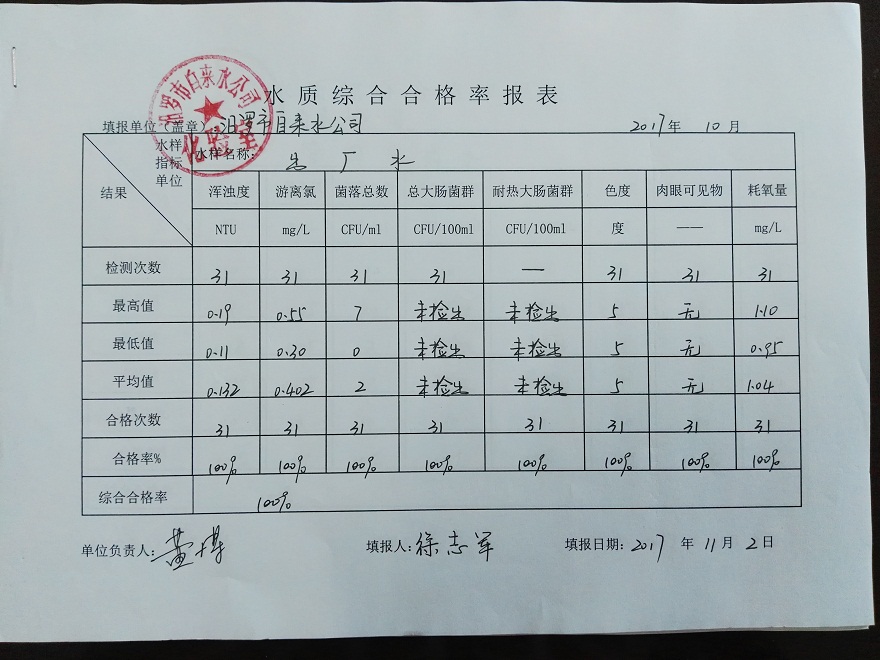 汨罗市自来水公司
化验室
水质综合合格率报表
填报单位(盖章):汨罗市自来水公司 2017年 10月
水样 指标 单位 结果 水样名称: 出厂水
浑浊度 游离氯 菌落总数 总大肠菌群 耐热大肠菌群 色度 肉眼可见物 耗氧量
NTU mg/L CFU/ml CFU/100ml CFU/100ml 度 —— mg/L
检测次数 31 31 31 31 — 31 31 31
最高值 0.19 0.55 7 未检出 未检出 5 无 1.10
最低值 0.11 0.30 0 未检出 未检出 5 无 0.95
平均值 0.132 0.402 2 未检出 未检出 5 无 1.04
合格次数 31 31 31 31 31 31 31 31
合格率% 100% 100% 100% 100% 100% 100% 100% 100%
综合合格率 100%
单位负责人: 填报人:徐志军 填报日期:2017 年 11月 2日